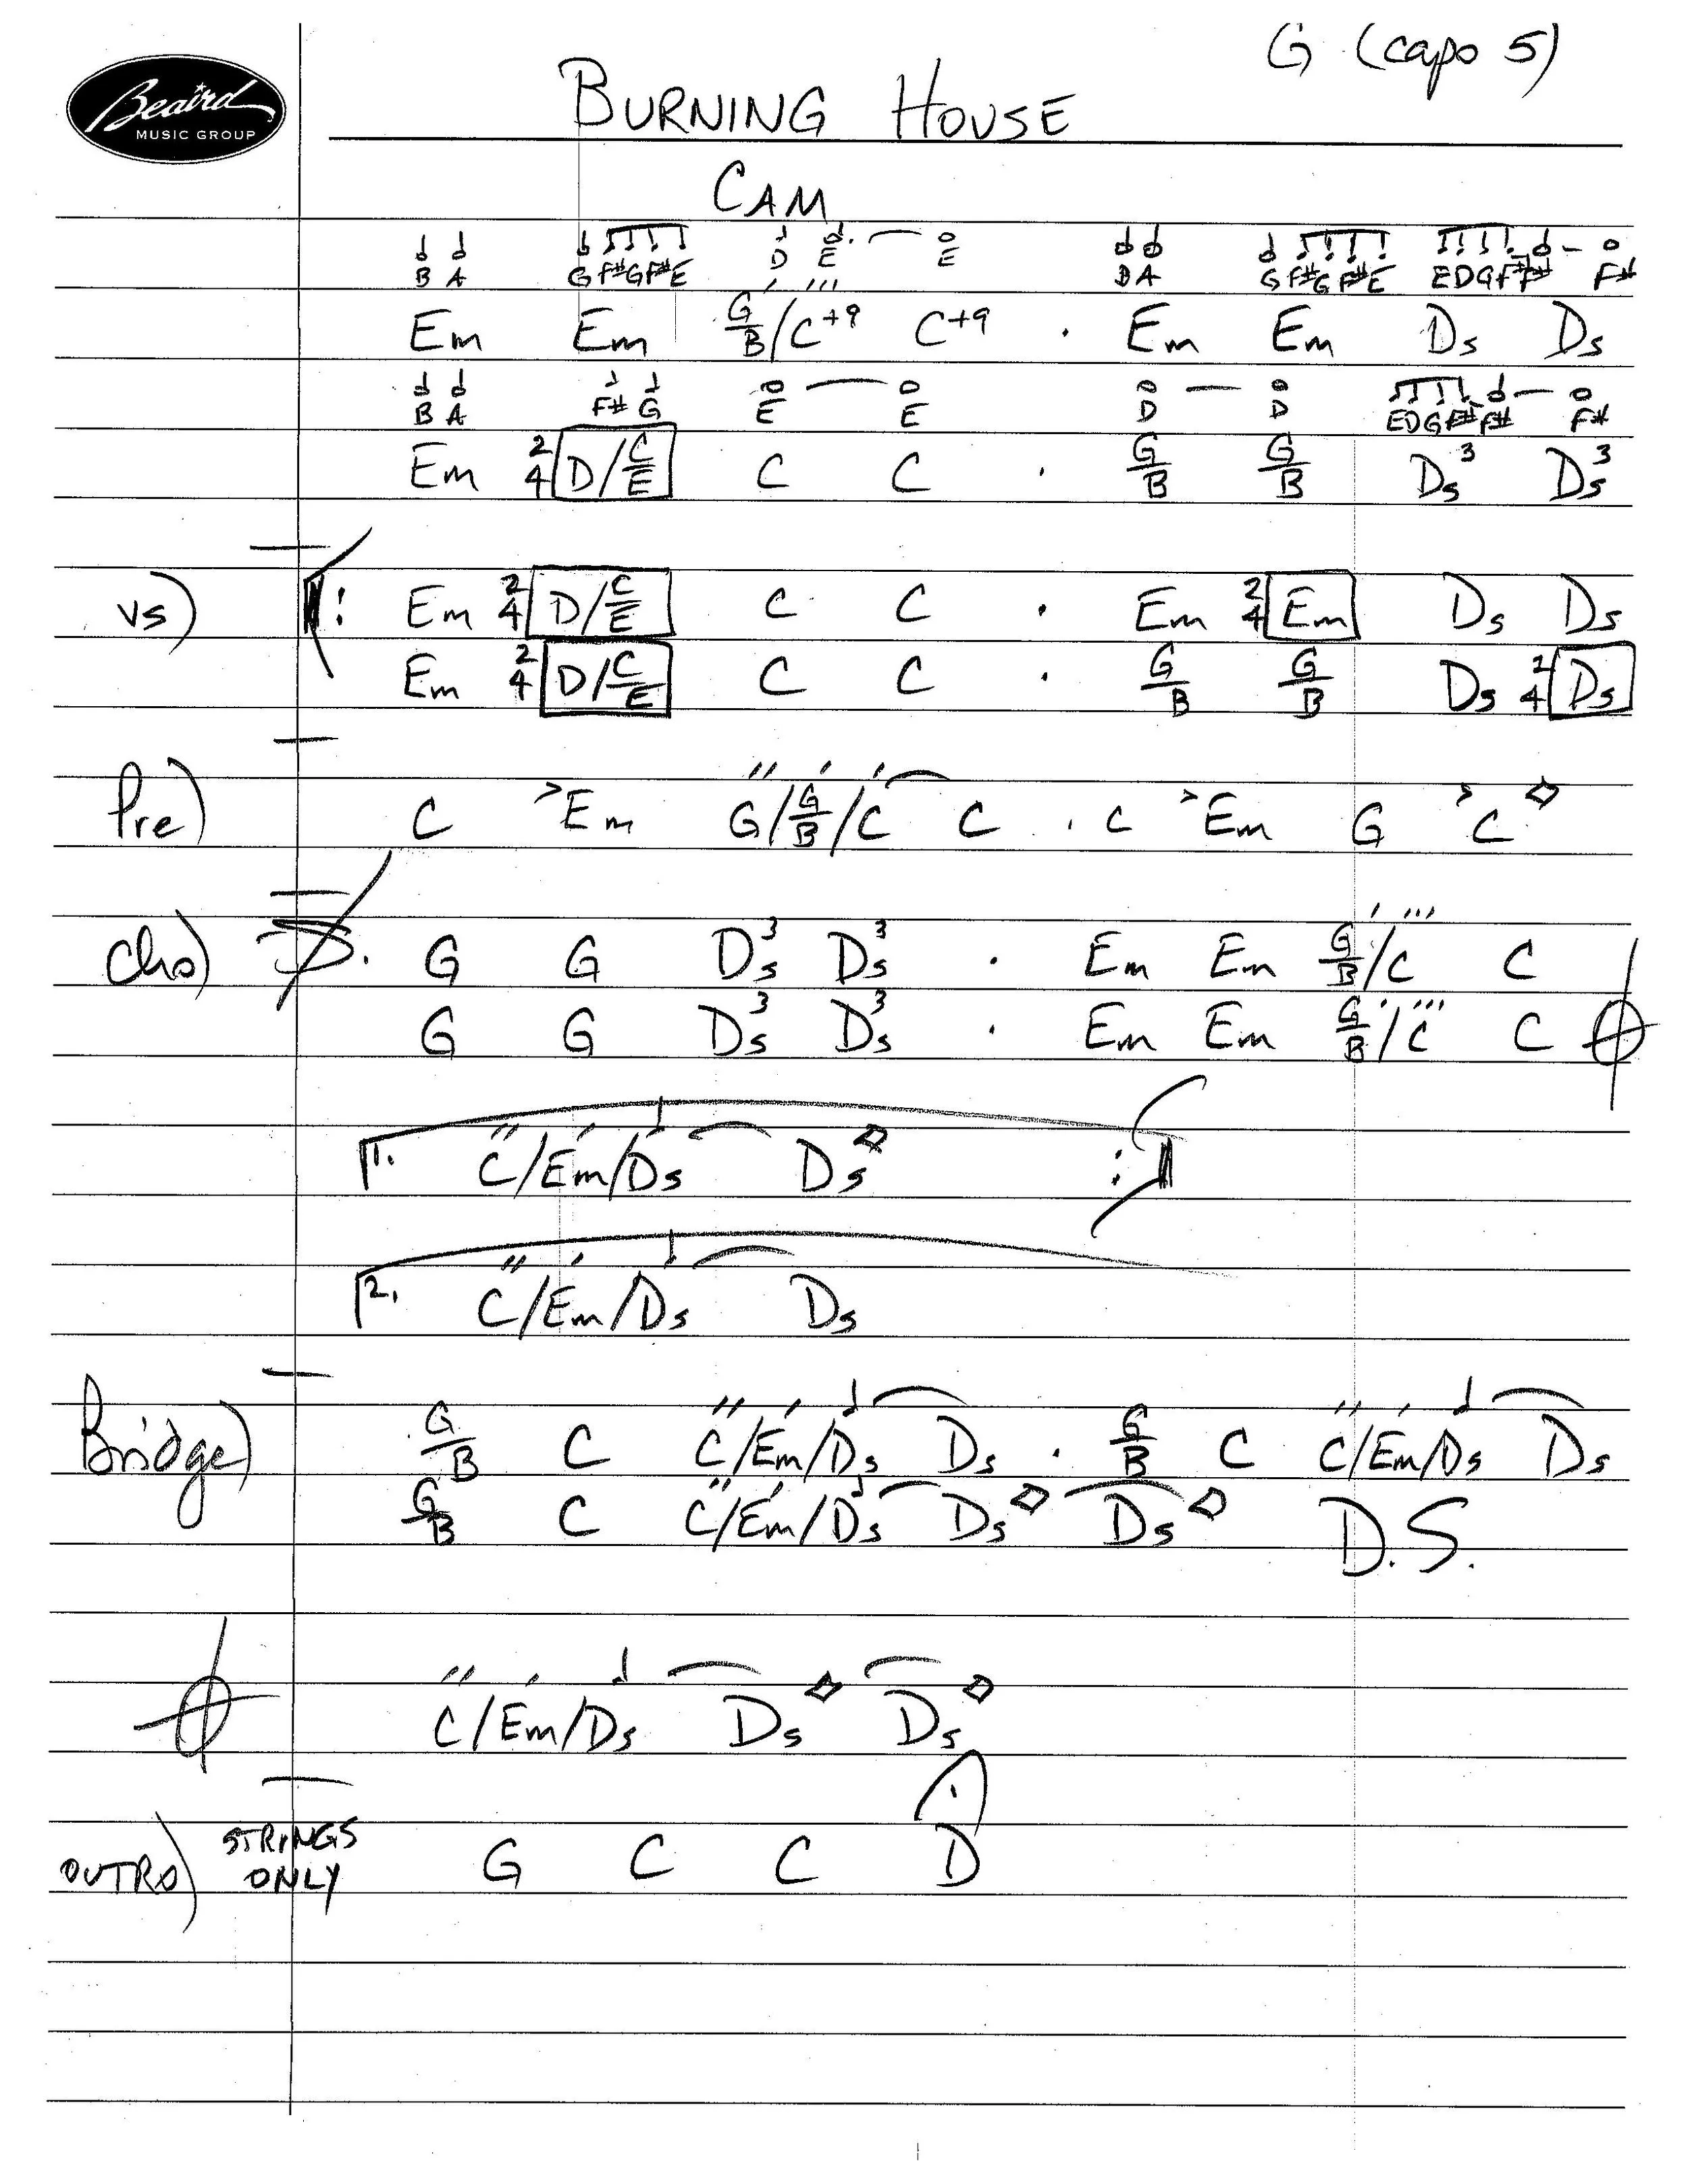 G (capo 5)
Beaird
MUSIC GROUP
BURNING HOUSE
CAM
B A G F# G F# E D E E B A G F# G F# E E D G F# F# F#
Em Em G/B / C+9 C+9 . Em Em Ds Ds
B A F# G E E D D E D G F# F# F#
Em 2/4 D/C/E C C . G/B G/B Ds3 Ds3
vs) : Em 2/4 D/C/E C C . Em 2/4 Em Ds Ds
Em 2/4 D/C/E C C . G/B G/B Ds 2/4 Ds
Pre) C >Em G/G/B/C C . C >Em G >C
Cho) G G Ds3 Ds3 . Em Em G/B/C C
G G Ds3 Ds3 . Em Em G/B/C C
1. C/Em/Ds Ds :
2. C/Em/Ds Ds
Bridge) G/B C C/Em/Ds Ds . G/B C C/Em/Ds Ds
G/B C C/Em/Ds Ds Ds D.S.
C/Em/Ds Ds Ds
OUTRO) STRINGS ONLY G C C D